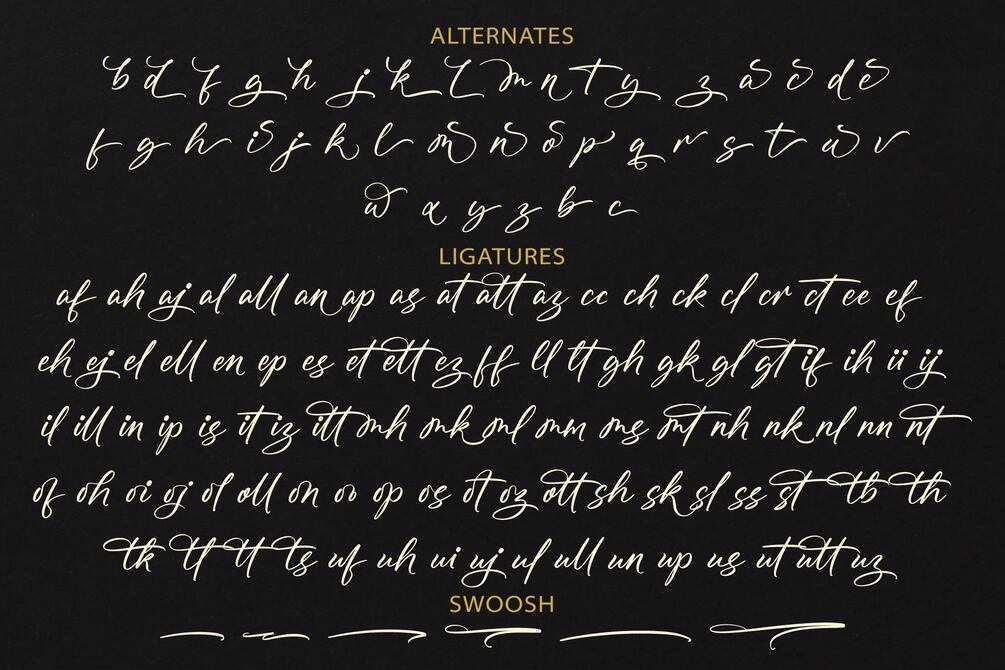 ALTERNATES
b d f g h j k l m n t y z a c d e
f g h i j k l m n o p q r s t u v
w x y z b c
LIGATURES
af ah aj al all an ap as at att az cc ch ck cl cr ct ee ef
eh ej el ell en ep es et ett ez ff ll lt gh gk gl gt if ih ii ij
il ill in ip is it iz itt mh mk ml mm ms mt nh nk nl nn nt
of oh oi oj ol oll on oo op os ot oz ott sh sk sl ss st tb th
tk tl tt ts uf uh ui uj ul ull un up us ut utt uz
SWOOSH